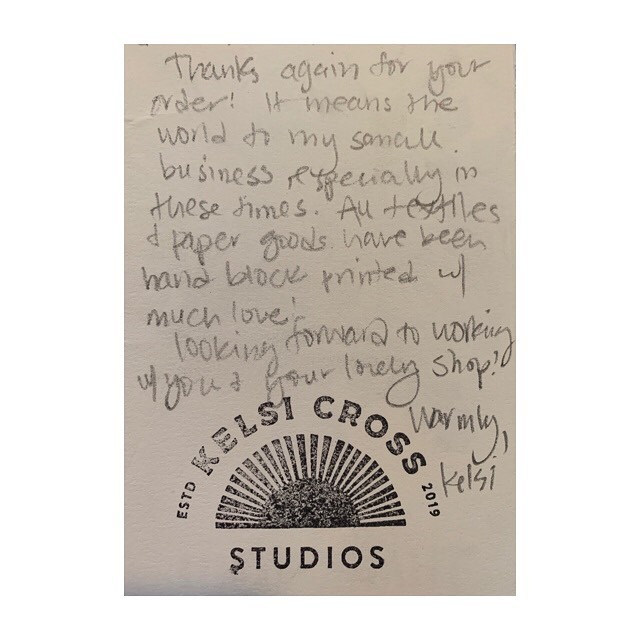 Thanks again for your
order! It means the
world to my small
business, especially in
these times. All textiles
& paper goods have been
hand block printed w/
much love!
looking forward to working
w/ you & your lovely shop!
Warmly,
Kelsi
KELSI CROSS
ESTD 2019
STUDIOS